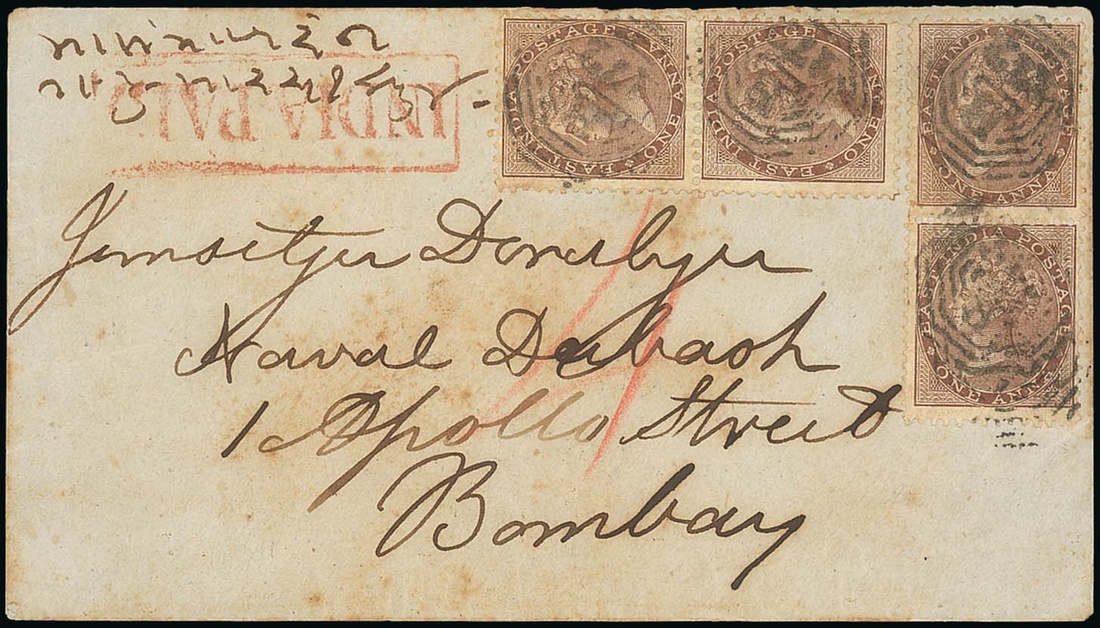 INDIA PAI
EAST INDIA POSTAGE
ONE ANNA
EAST INDIA POSTAGE
ONE ANNA
EAST INDIA POSTAGE
ONE ANNA
EAST INDIA POSTAGE
ONE ANNA
Jemsetjee Dorabjee
Naval Dubash
1 Apollo Street
Bombay
4